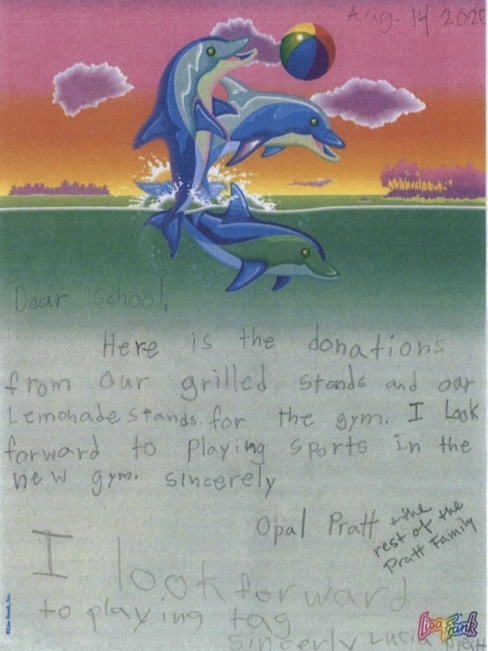 Aug. 14 2020
Dear School,
Here is the donations
from our grilled stands and our
Lemonade stands for the gym. I Look
forward to playing sports in the
new gym. sincerely
Opal Pratt + the
rest of the
Pratt Family
I look forward
to playing tag
sincerly Lucia Pratt
©Lisa Frank, Inc.
Lisa Frank